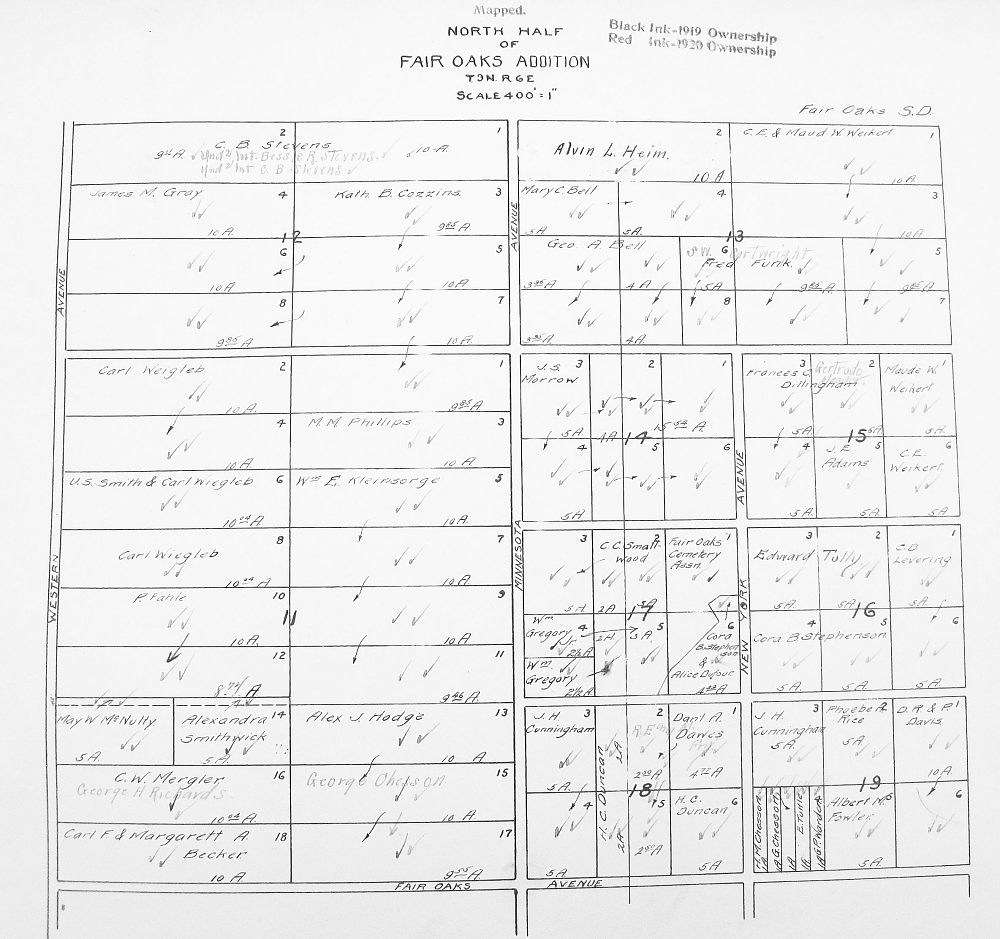 Mapped.
Black Ink-1919 Ownership
Red Ink-1920 Ownership
NORTH HALF
OF
FAIR OAKS ADDITION
T9N. R6E
SCALE 400'=1"
Fair Oaks S.D.
2
C. B. Stevens
Und ½ Int. Bessie R. Stevens.
Und ½ Int C. B. Stevens
1
10 A.
James M. Gray
4
10 A.
Kath. B. Cozzins.
3
9 85 A.
12
6
10 A
5
10 A.
8
9 85 A.
7
10 A.
2
Alvin L. Heim.
10 A
C.E. & Maud W. Weikert
1
10 A.
Mary C. Bell
5A
4
5A.
3
10 A
13
Geo. A Bell
4 A
6
Cartwright
Fred Funk.
5A
9 85 A.
5
9 85 A.
8
4A.
7
AVENUE
AVENUE
Carl Weigleb
2
10 A.
1
9 85 A
4
10 A.
M. M. Phillips
3
10 A.
U.S. Smith & Carl Wiegleb
6
10 04 A.
Wm E. Kleinsorge
5
10 A.
Carl Wiegleb
8
10 04 A
7
10 A.
P. Fahle
10
10 A.
9
10 A.
11
12
8.74 A
11
9 46 A.
May W. McNulty
5 A.
Alexandra
Smithwick
14
5 A.
Alex J. Hodge
13
10 A
C. W. Mergler
George H Richards.
16
10 04 A.
George Cheison
15
10 A
Carl F & Margarett A.
Becker
18
10 A
17
9 55 A.
WESTERN
MINNESOTA
J. S.
Morrow
3
5 A.
2
1A
1
15 54 A.
14
4
5 A.
5
6
AVENUE
NEW YORK
Frances C.
Dillingham
3
5 A.
Gertrude
2
5A.
Maude W.
Weikert
1
5 A.
15
4
5 A.
J. E.
Adams
5
5 A.
C.E.
Weikert
6
5 A.
3
5 A
C.C. Small-
wood
2
2 A
Fair Oaks
Cemetery
Assn.
1
17
Wm
Gregory
Jr.
4
2½ A
Wm.
Gregory
2½ A
2A
5
3 A.
6
Cora
B. Stephen
son
&
Alice Dufour
Edward Tully
3
5 A.
2
5A
C.D.
Levering
1
5 A.
16
Cora B. Stephenson
4
5 A.
5
5 A.
6
5 A.
J. H.
Cunningham
3
5 A.
H. C. Duncan
2A
2A
2
Danl A.
Dawes
1
18
4
5 A.
5
H. C.
Duncan
6
5 A
J. H.
Cunningham
3
5 A.
Phoebe A.
Rice
2
5 A.
D. R. & P.
Davis.
1
10 A.
19
M. M. Chesson
1A
A. G. Chesson
1A
E. Tuttle
1A
1A
G. P. Worden
4
Albert M.
Fowler
5
5 A.
6
FAIR OAKS AVENUE